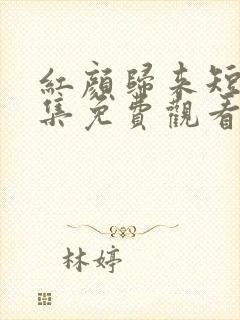 紅顏歸來短
集免費觀看
林婷